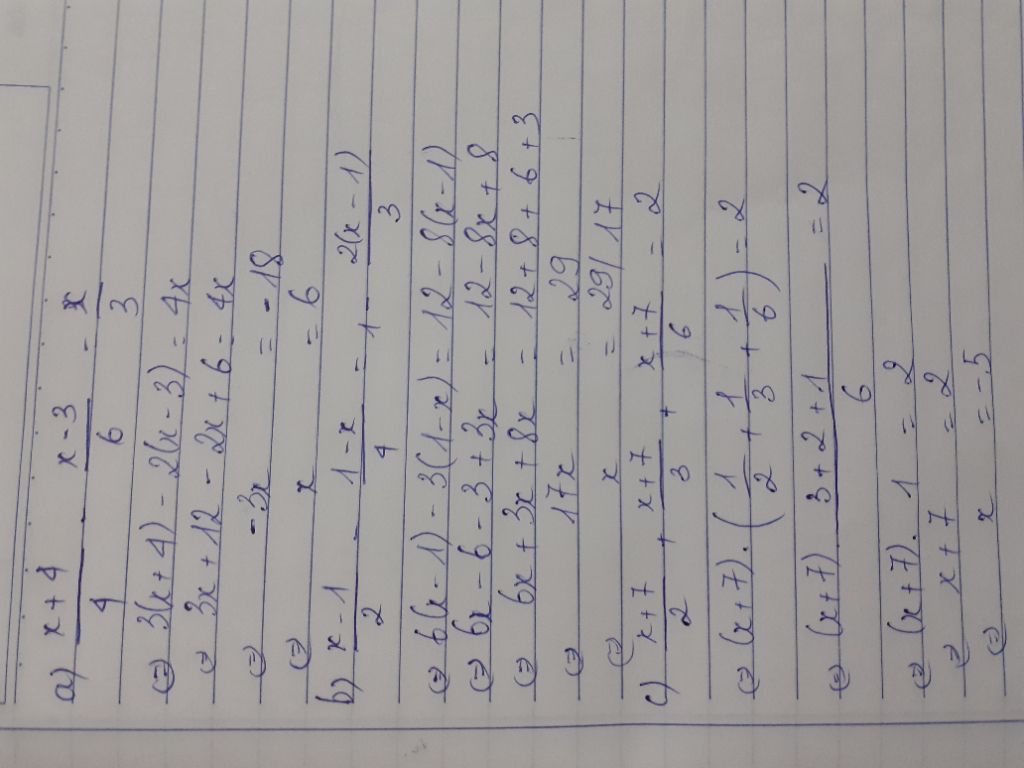 a) x+4/4 - x-3/6 = x/3
⇔ 3(x+4) - 2(x-3) = 4x
⇔ 3x+12 - 2x+6 = 4x
⇔ -3x = -18
⇔ x = 6
b) x-1/2 - 1-x/4 = 1 - 2(x-1)/3
⇔ 6(x-1) - 3(1-x) = 12 - 8(x-1)
⇔ 6x - 6 - 3 + 3x = 12 - 8x + 8
⇔ 6x + 3x + 8x = 12 + 8 + 6 + 3
⇔ 17x = 29
⇔ x = 29/17
c) x+7/2 + x+7/3 + x+7/6 = 2
⇔ (x+7).(1/2 + 1/3 + 1/6) = 2
⇔ (x+7) 3+2+1/6 = 2
⇔ (x+7). 1 = 2
⇔ x+7 = 2
⇔ x = -5